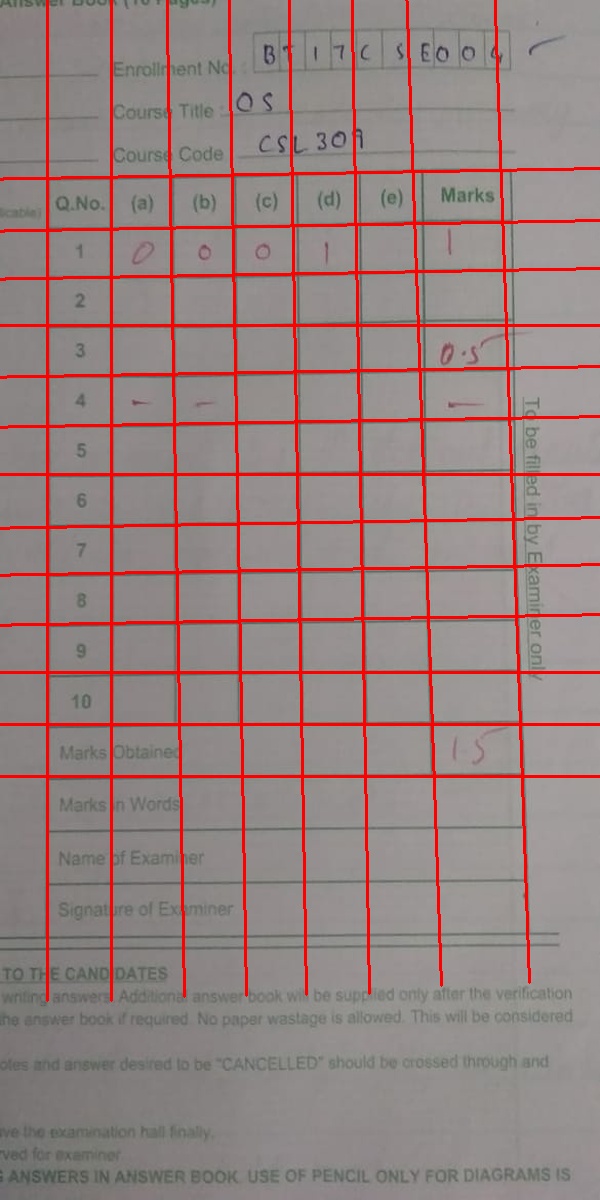 Answer Book (16 Pages)
Enrollment No. : B T 1 7 C S E 0 0 4
Course Title : OS
Course Code : CSL 309
Q.No. (a) (b) (c) (d) (e) Marks
1 0 0 0 1 1
2
3 0.5
4 - - -
5
6
7
8
9
10
To be filled in by Examiner only
Marks Obtained 1.5
Marks in Words
Name of Examiner
Signature of Examiner
TO THE CANDIDATES
writing answers. Additional answer book will be supplied only after the verification
the answer book if required. No paper wastage is allowed. This will be considered
and answer desired to be "CANCELLED" should be crossed through and
the examination hall finally.
for examiner
ANSWERS IN ANSWER BOOK. USE OF PENCIL ONLY FOR DIAGRAMS IS